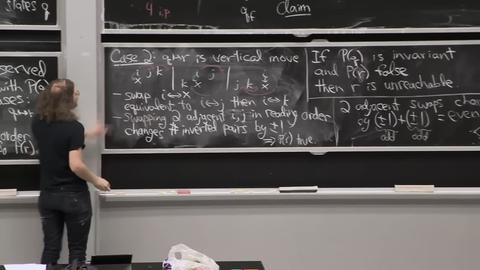 states q
4 i.p
qf
Claim
served
with P(q)
ases:
q
order
P(r)
Case 2: q↔r is vertical move
i j k | x j k | j k i
x
- swap i↔x
equivalent to i↔j then i↔k
- swapping 2 adjacent i,j in reading order
changes # inverted pairs by ±1
⇒ P(r) true.
If P(q) is invariant
and P(r) false
then r is unreachable.
2 adjacent swaps
by (±1)+(±1) = even
odd odd